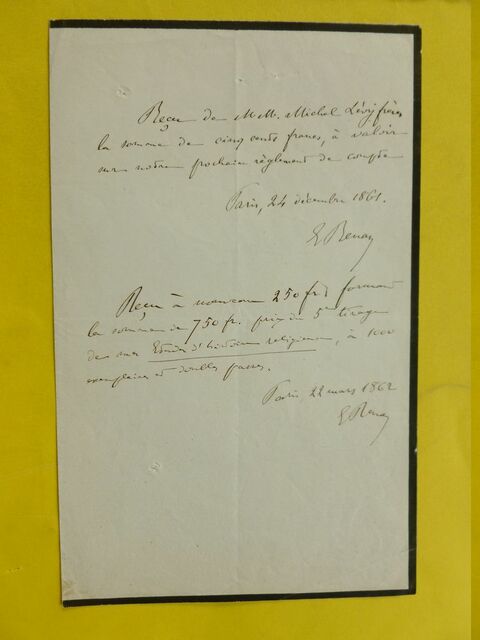 Reçu de MM. Michel Lévy frères
la somme de cinq cents francs, à valoir
sur notre prochain règlement de compte
Paris, 24 décembre 1861.
E. Renan
Reçu à nouveau 250 fr, formant
la somme de 750 fr. prix du 5e tirage
de mes Etudes d'histoire religieuse, à 1000
exemplaires et doubles passes.
Paris, 22 mars 1862
E. Renan